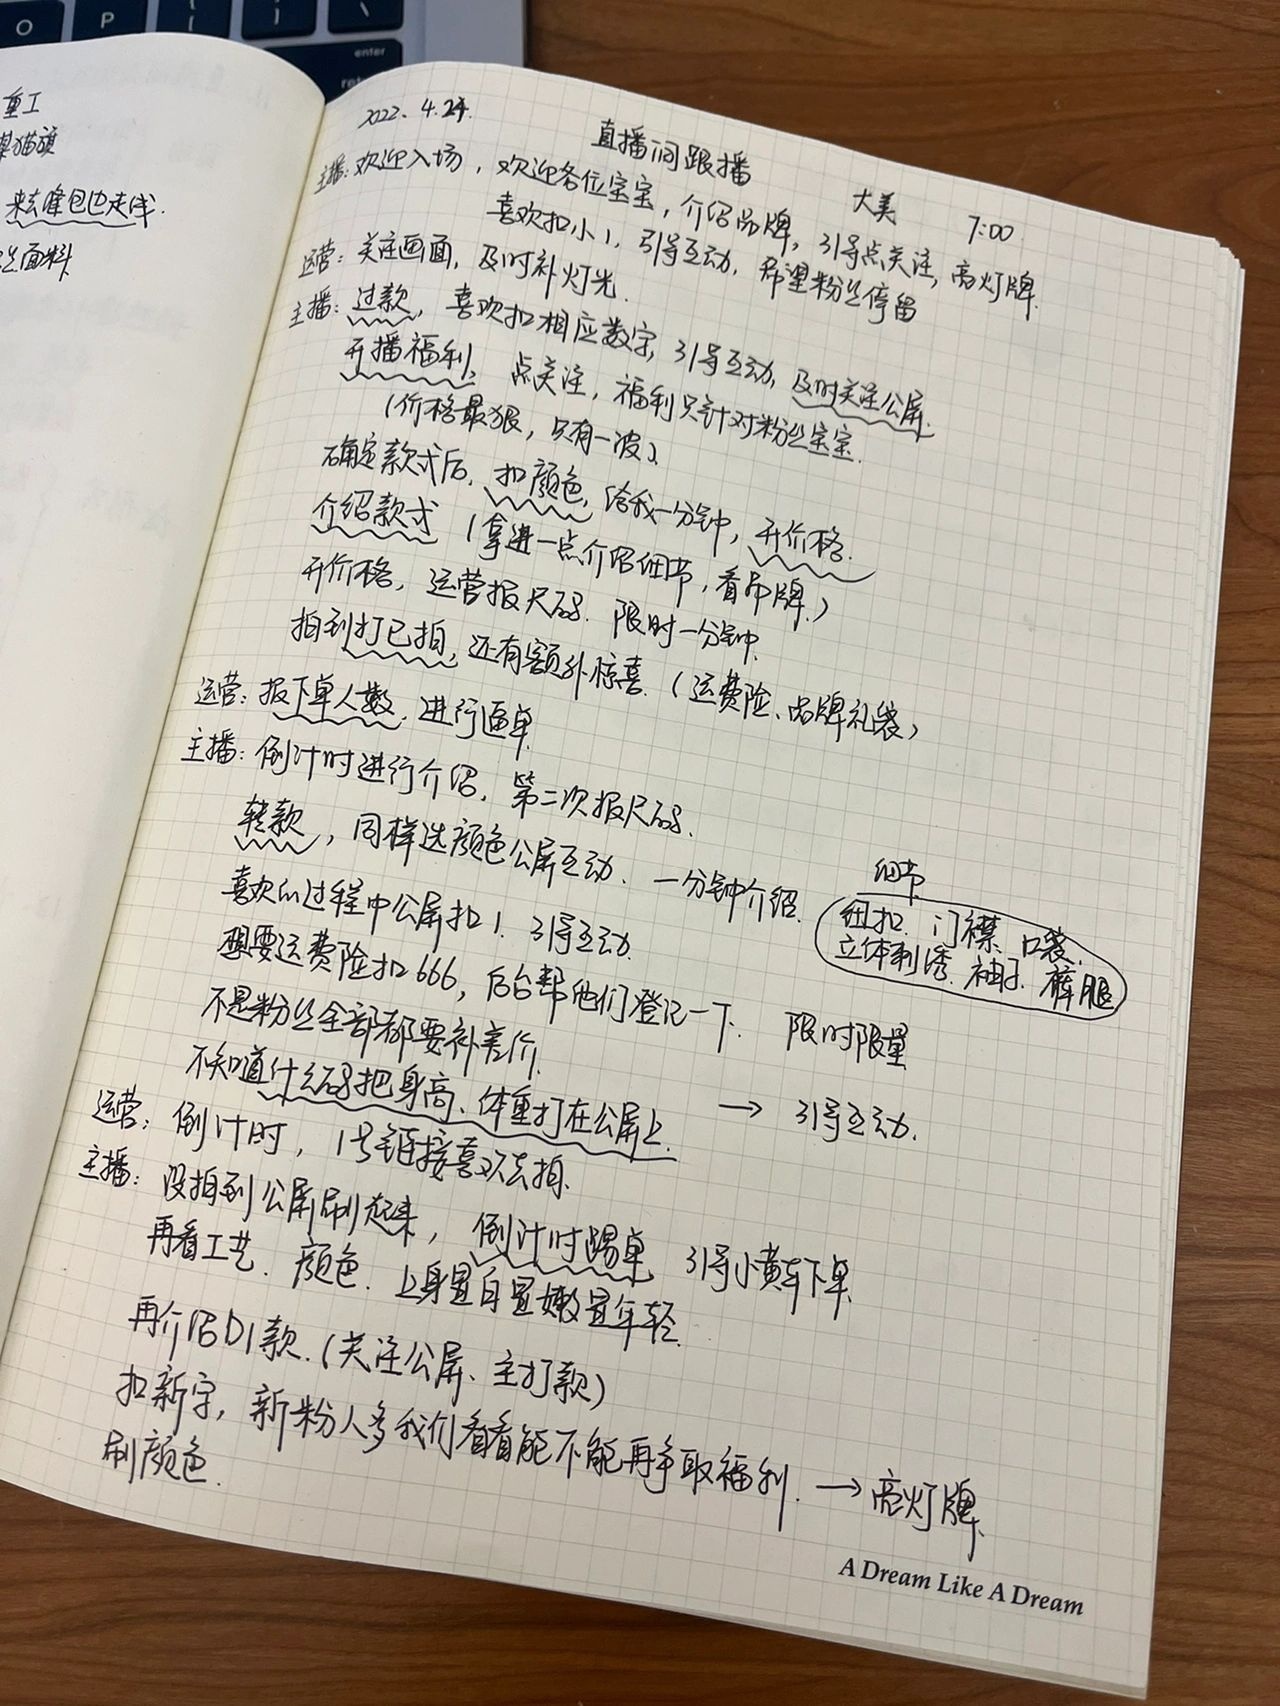 重工
猫须
包边走线
面料
2022. 4.24.
直播间跟播
大美 7:00
主播: 欢迎入场, 欢迎各位宝宝, 介绍品牌, 引导点关注, 亮灯牌.
喜欢扣小1, 引导互动, 希望粉丝停留
运营: 关注画面, 及时补灯光.
主播: 过款, 喜欢扣相应数字, 引导互动, 及时关注公屏.
开播福利, 点关注, 福利只针对粉丝宝宝.
(价格最狠, 只有一波).
确定款式后, 扣颜色, 给我一分钟, 开价格.
介绍款式 (拿进一点介绍细节, 看吊牌.)
开价格, 运营报尺码. 限时一分钟.
拍到打已拍, 还有额外惊喜. (运费险、品牌礼袋)
运营: 报下单人数, 进行逼单
主播: 倒计时进行介绍, 第二次报尺码.
转款, 同样选颜色公屏互动. 一分钟介绍.
细节
纽扣. 门襟. 口袋.
立体刺绣. 袖子. 裤腿
喜欢的过程中公屏扣1. 引导互动.
想要运费险扣666, 后台帮他们登记一下. 限时限量
不是粉丝全部都要补差价.
不知道什么码把身高、体重打在公屏上. → 引导互动.
运营: 倒计时, 1号链接喜欢去拍.
主播: 没拍到公屏刷起来, 倒计时踢单, 引导小黄车下单.
再看工艺. 颜色. 上身显白显嫩显年轻.
再介绍D1款. (关注公屏、主打款)
扣新字, 新粉人多我们看看能不能再争取福利. → 亮灯牌.
刷颜色.
A Dream Like A Dream
O
P
enter